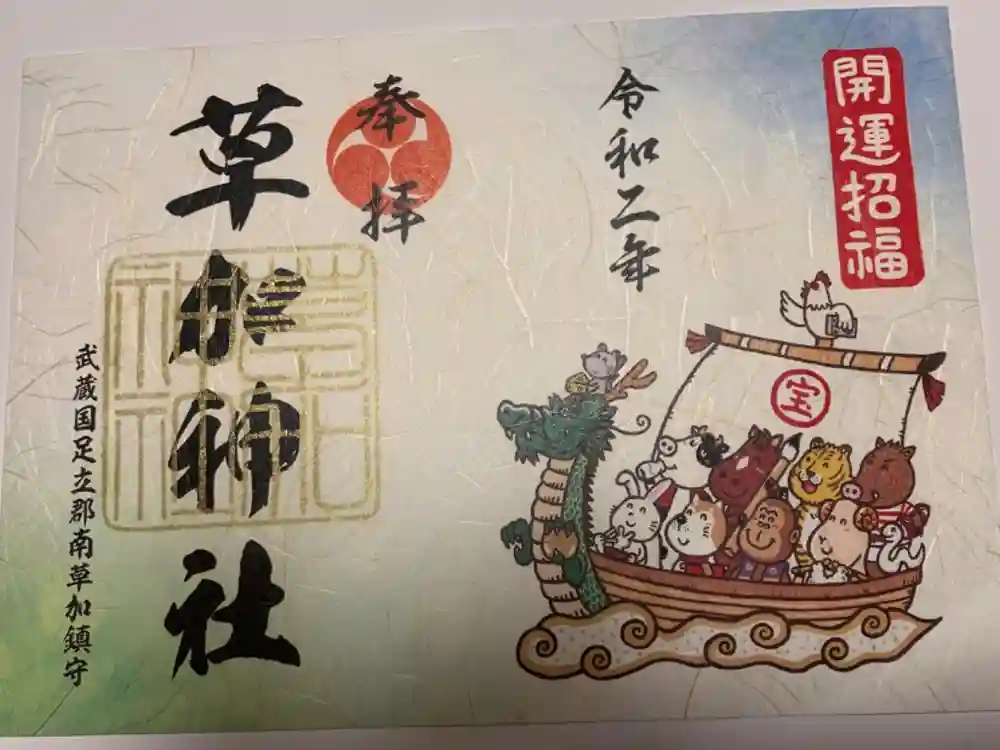 開運招福
令和二年
宝
奉拝
草加神社
武蔵国足立郡南草加鎮守